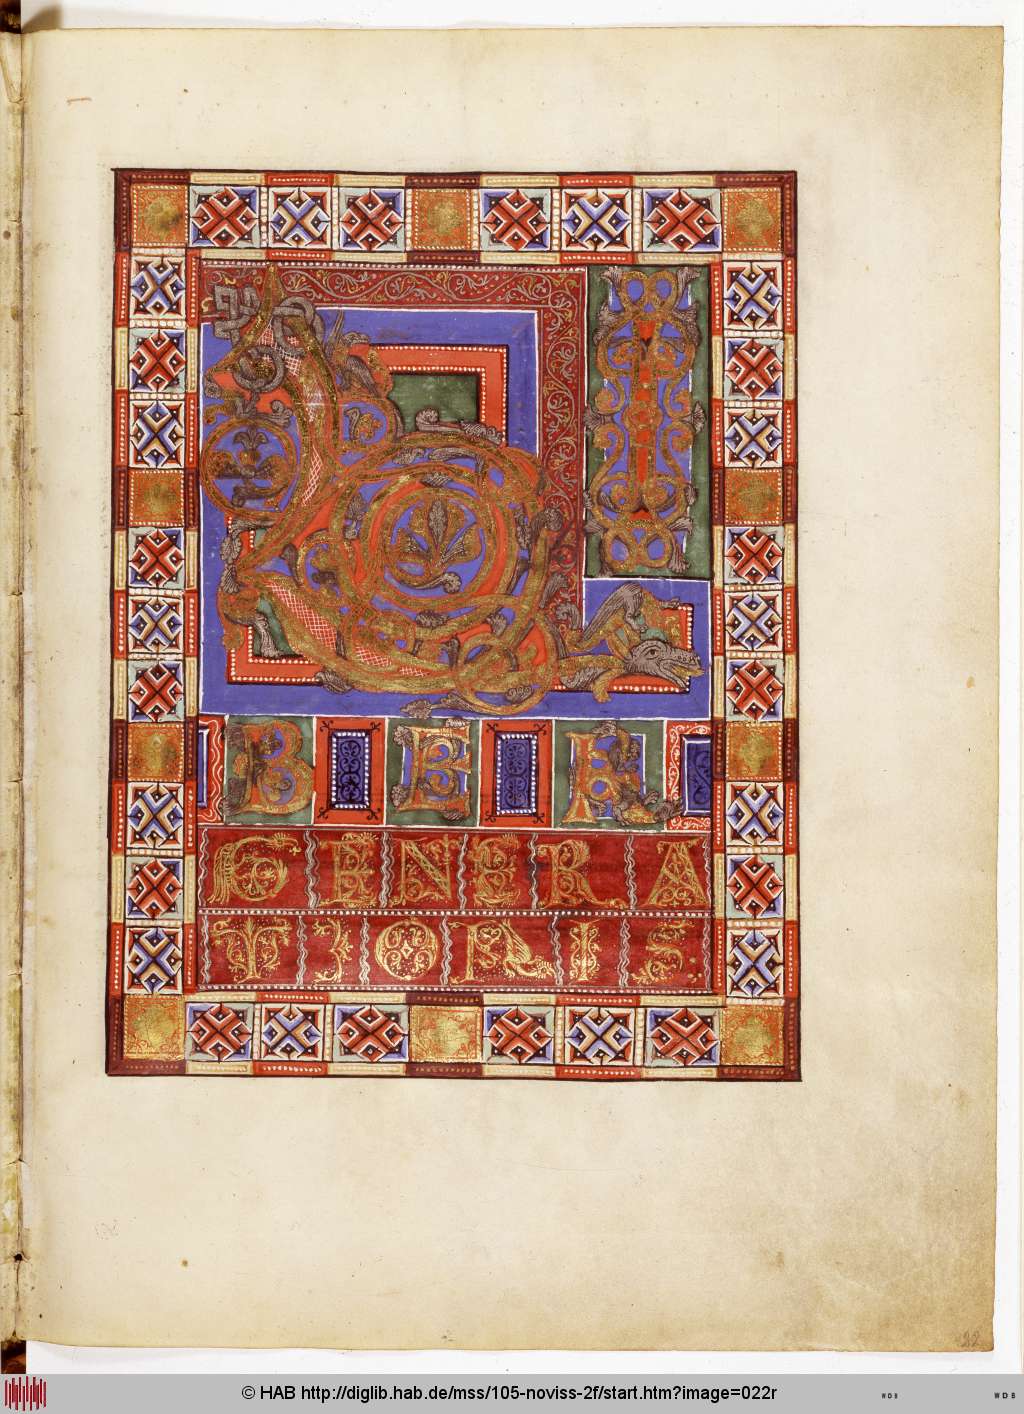 LI
BER
GENERA
TIONIS
22
© HAB http://diglib.hab.de/mss/105-noviss-2f/start.htm?image=022r
WDB
WDB